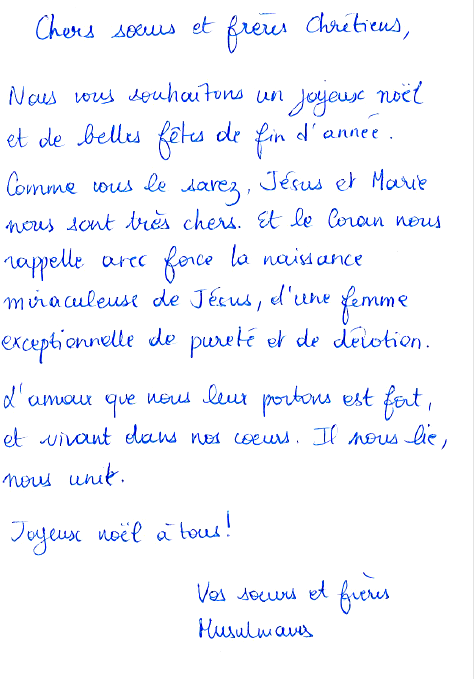 Chers sœurs et frères Chrétiens,
Nous vous souhaitons un joyeux noël
et de belles fêtes de fin d'année.
Comme vous le savez, Jésus et Marie
nous sont très chers. Et le Coran nous
rappelle avec force la naissance
miraculeuse de Jésus, d'une femme
exceptionnelle de pureté et de dévotion.
L'amour que nous leur portons est fort,
et vivant dans nos cœurs. Il nous lie,
nous unit.
Joyeux noël à tous!
Vos sœurs et frères
Musulmans